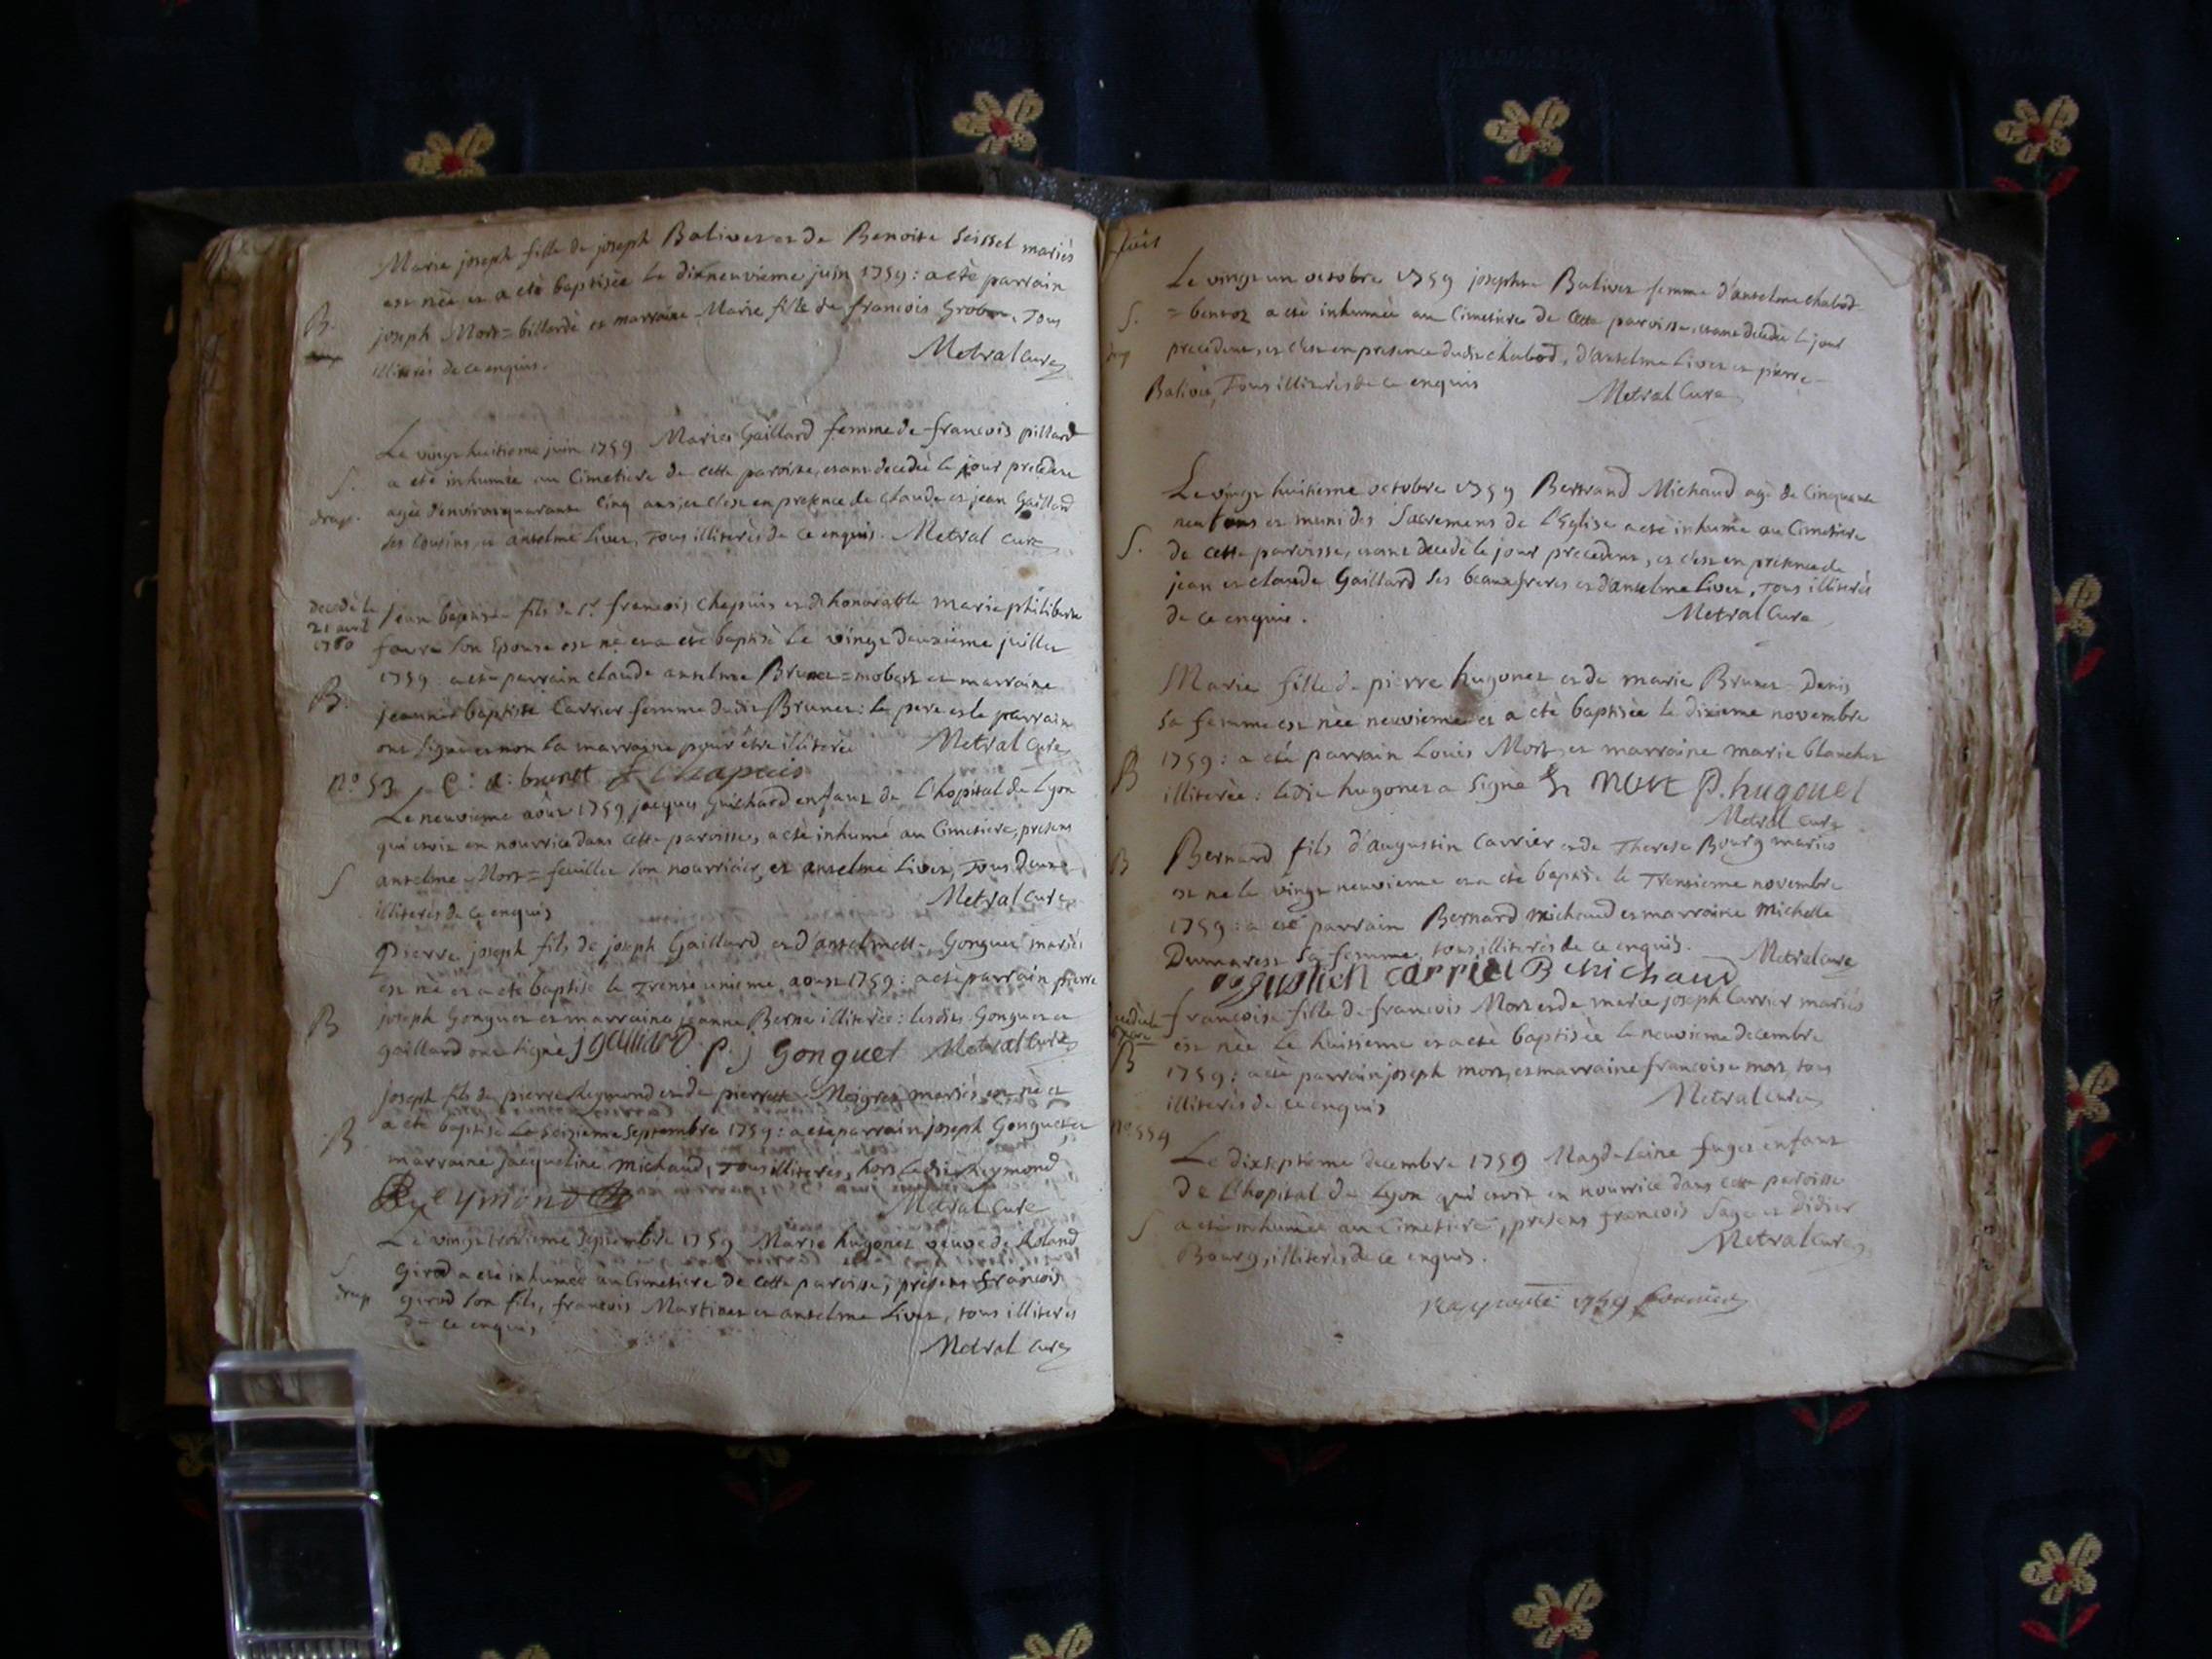 Marie joseph fille de joseph Balivet et de Benoite Seissel mariés
est née et a eté baptisée le dixneuvieme juin 1759: a eté parrain
B.
joseph Mort=billardé et marraine Marie fille de francois Grobon, Tous
illiterés de ce enquis.
Metral Curé
Le vingt huitieme juin 1759 Marie Gaillard femme de francois pillard
a eté inhumée au Cimetiere de cette paroisse, etant decedée le jour precedent
S.
agée d'environ quarante Cinq ans, et c'est en presence de claude et jean Gaillard
drap.
ses Cousins, et anselme Livet, Tous illiterés de ce enquis. Metral curé
decedé le
21 avril
1760
jean baptiste fils de Sr. francois Chapuis et d'honorable marie philiberte
favre son Epouse est né et a eté baptisé le vingt deuxieme juillet
1759: a eté parrain claude anselme Brunet=mobert et marraine
B.
jeanne baptiste Carrier femme dudit Brunet: le pere et le parrain
ont signé et non la marraine pour être illiterée
Metral Curé
no. 53
C: a: brunet f Chapuis
Le neuvieme aout 1759 jacques Guichard enfant de l'hopital de Lyon
qui etoit en nourrice dans cette paroisse, a eté inhumé au Cimetiere, presens
S
anselme Mort=feuillet son nourricier, et anselme Livet, Tous Deux
illiterés de ce enquis
Metral Curé
Pierre joseph fils de joseph Gaillard et d'anselmette Gonguet mariés
est né et a eté baptisé le Trente unieme aoust 1759: a eté parrain pierre
B
joseph Gonguet et marraine jeanne Berne illiterée: lesdits Gonguet et
gaillard ont signé j gailliard p. j Gonguet Metral Curé
joseph fils de pierre Reymond et de pierrette Neigret mariés est né et
B
a eté baptisé le seizieme Septembre 1759: a eté parrain joseph Gonguet et
marraine jacqueline Michaud, Tous illiterés, hors ledit Reymond
Reymond
Metral Curé
Le vingt troisieme Septembre 1759 Marie hugonet veuve de Roland
Girod a eté inhumée au Cimetiere de cette paroisse, presens francois
drap
Girod son fils, francois Martinet et anselme Livet, tous illiterés
de ce enquis
Metral curé
Le vingt un octobre 1759 josephte Balivet femme d'anselme chabod
S.
=bentoz a eté inhumée au Cimetiere de cette paroisse, etant decedée le jour
drap
precedent, et c'est en presence dudit chabod, d'anselme Livet et pierre
Balivet, Tous illiterés de ce enquis
Metral Curé
Le vingt huitieme octobre 1759 Bertrand Michaud agé de Cinquante
neuf ans et muni des Sacremens de l'Eglise a eté inhumé au Cimetiere
S.
de cette paroisse, etant decedé le jour precedent, et c'est en presence de
jean et claude Gaillard ses beaux freres et d'anselme Livet, Tous illiterés
de ce enquis.
Metral Curé
Marie fille de pierre hugonet et de marie Brunet Denis
sa femme est née neuvieme et a eté baptisée le dixieme novembre
B
1759: a eté parrain Louis Mort, et marraine marie blanchet
illiterée: ledit hugonet a signé mort P. hugonet
Metral curé
B
Bernard fils d'augustin Carrier et de Therese Bourg mariés
est né le vingt neuvieme et a eté baptisé le Trentieme novembre
1759: a eté parrain Bernard Michaud et marraine Michelle
Dumarest Sa femme, tous illiterés de ce enquis.
Metral curé
ogustien carriel B Michaud
B
francoise fille de francois Mort et de marie joseph Carrier mariés
est née le huitieme et a eté baptisée le neuvieme decembre
1759: a eté parrain joseph mort, et marraine francoise mort, tous
illiterés de ce enquis
Metral curé
Le dixseptieme decembre 1759 Magdelaine fuget enfant
de l'hopital de Lyon qui etoit en nourrice dans cette paroisse
S
a eté inhumée au Cimetiere, presens francois Sage et Didier
Bourg, illiterés de ce enquis.
Metral Curé